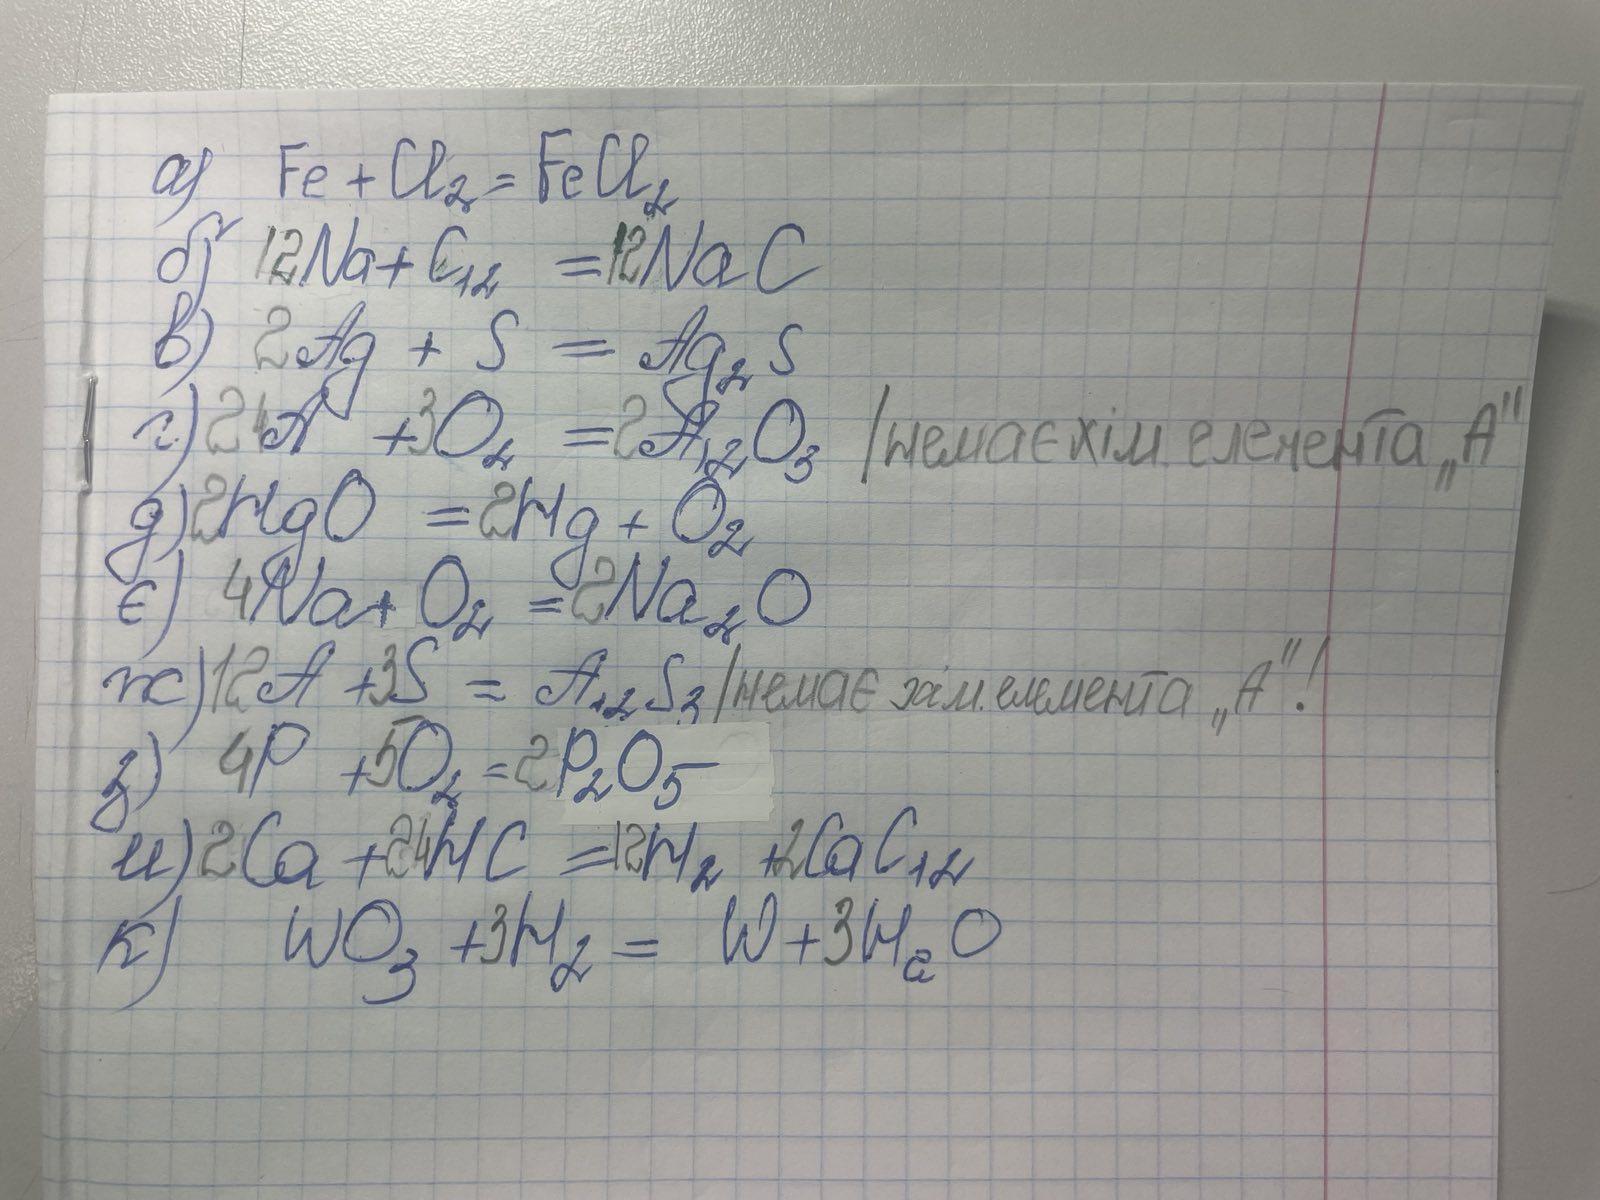 а) Fe + Cl₂ = FeCl₂
б) 12Na + C₁₂ = 12NaC
в) 2Ag + S = Ag₂S
г) 24A + 3O₂ = 2A₁₂O₃ /немає хім. елемента „A"
д) 2HgO = 2Hg + O₂
є) 4Na + O₂ = 2Na₂O
ж) 12A + 3S = A₁₂S₃ /немає хім. елемента „A"!
з) 4P + 5O₂ = 2P₂O₅
и) 2Ca + 24HC = 12H₂ + 2CaC₁₂
к) WO₃ + 3H₂ = W + 3H₂O